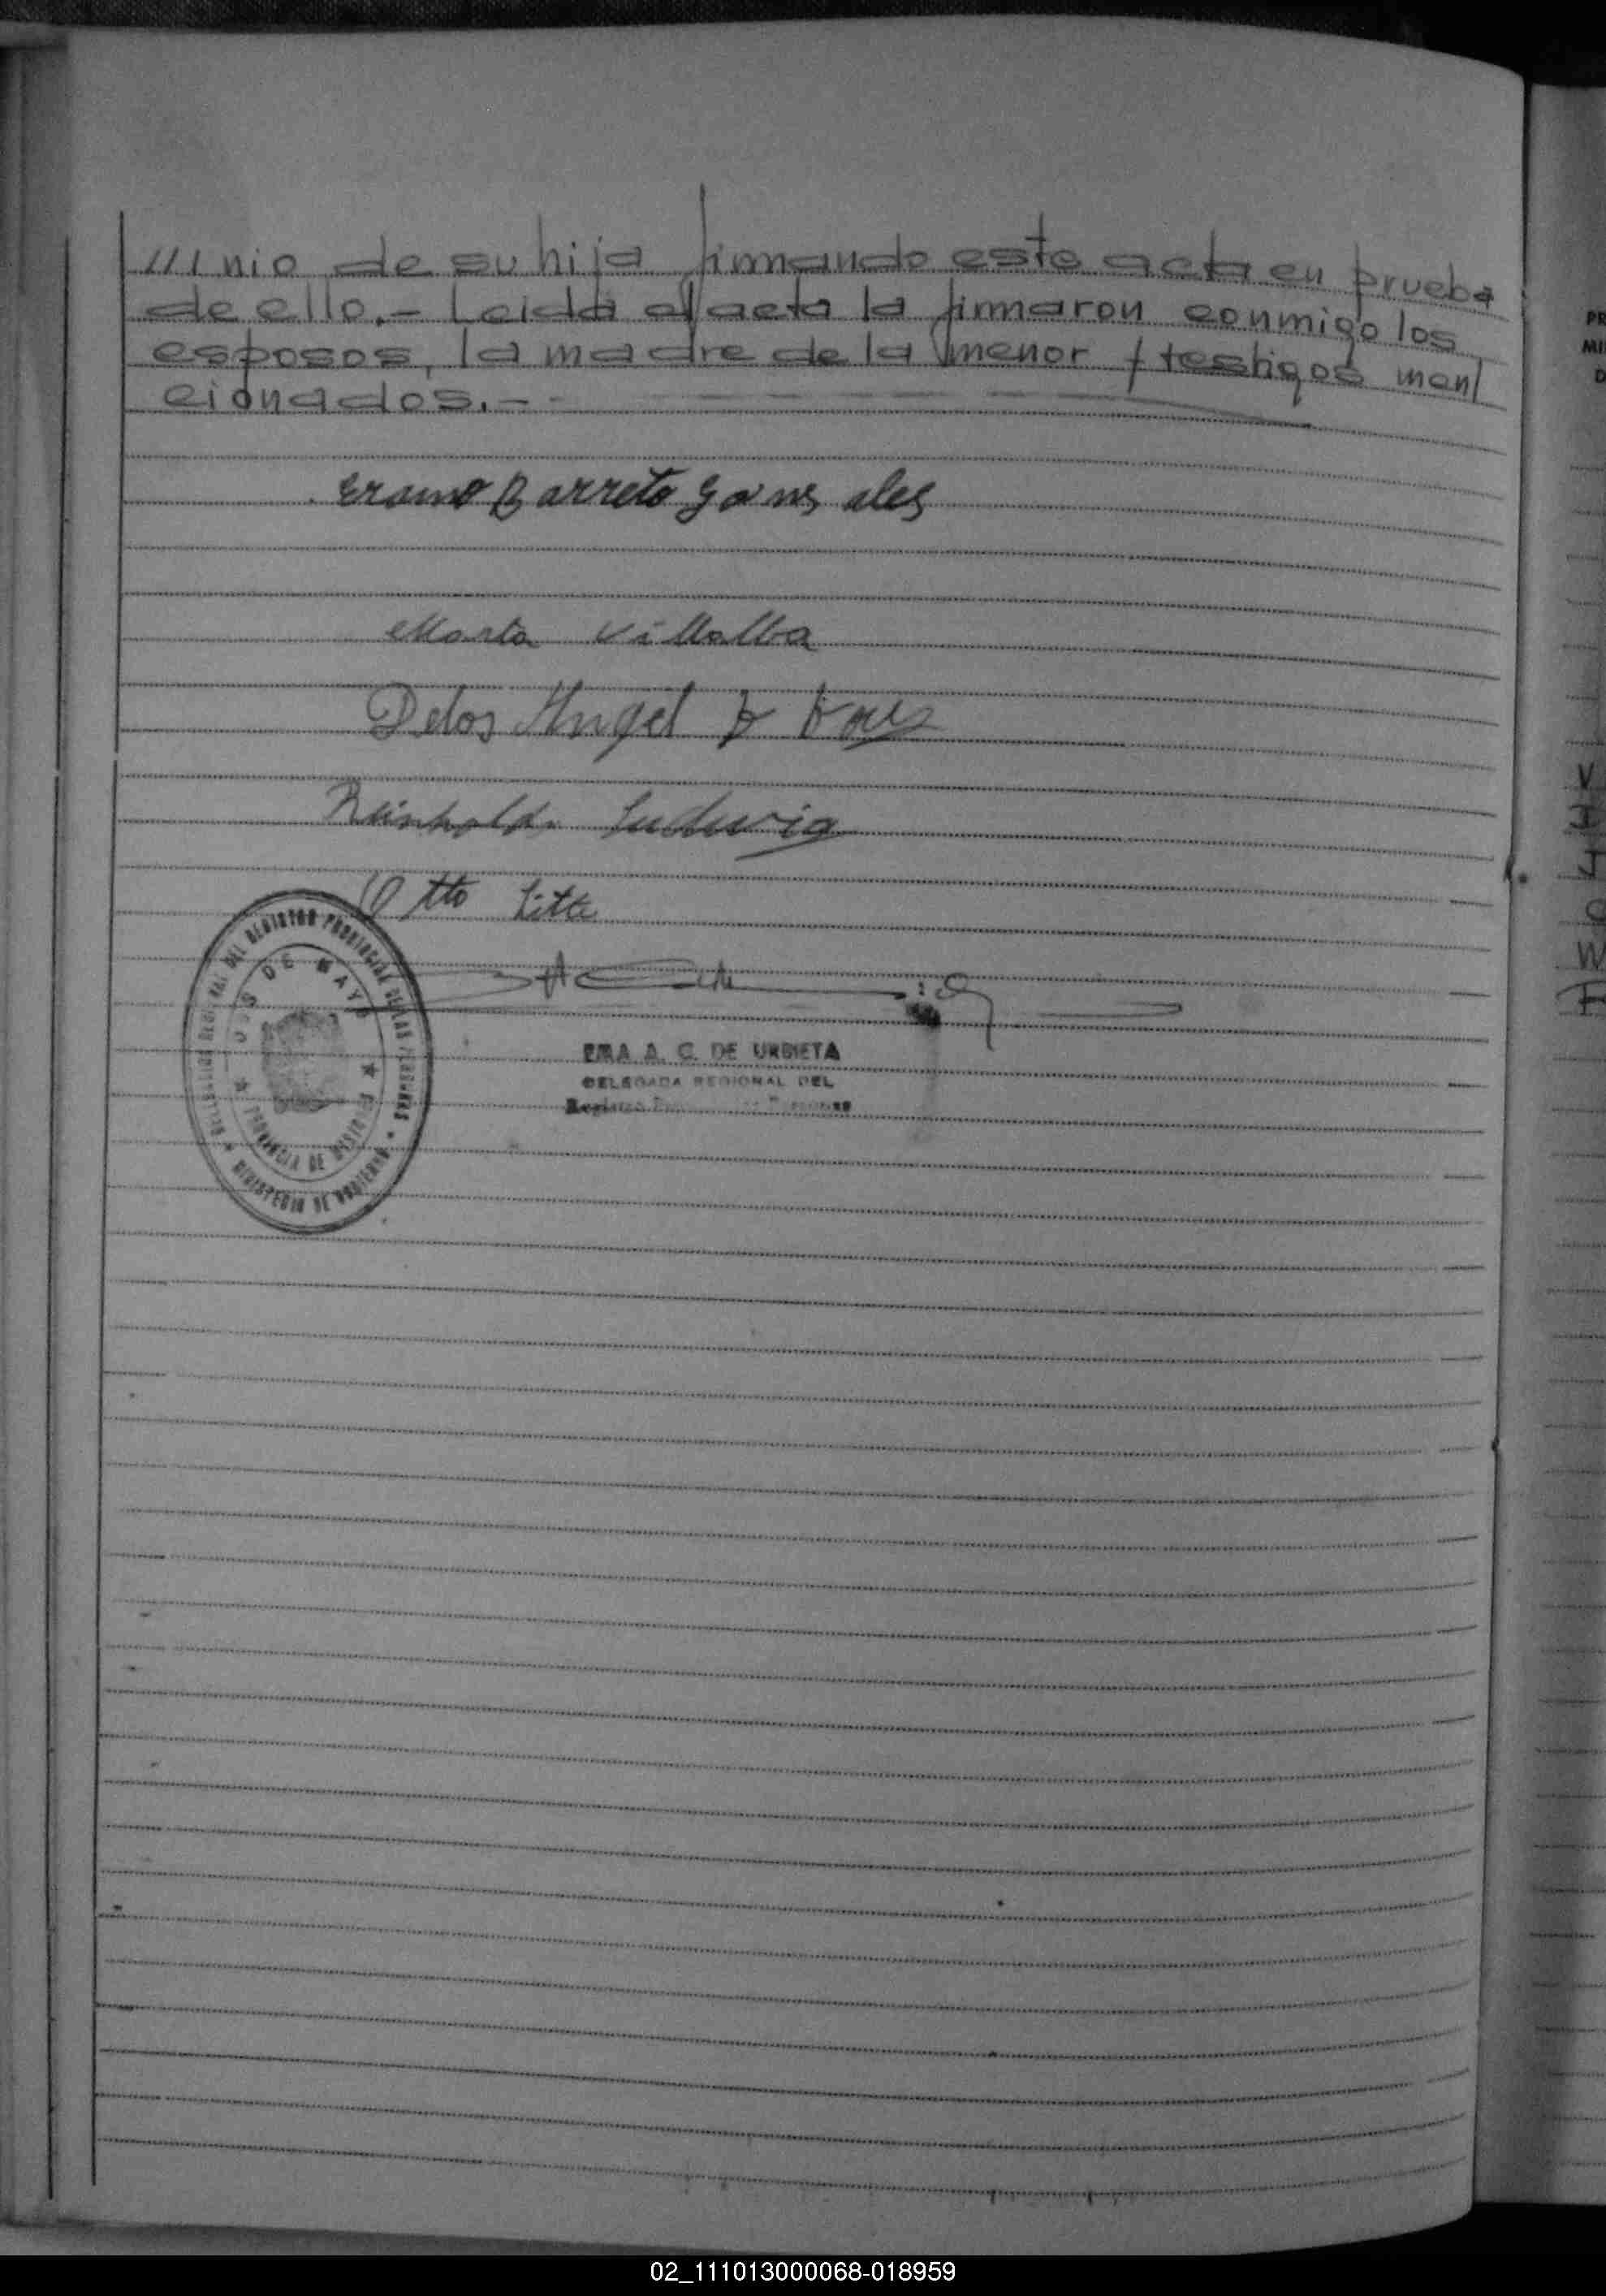 ///nio de su hija firmando este acta en prueba
de ello.- Leida el acta la firmaron conmigo los
esposos, la madre de la menor y testigos men/
cionados.-
Eramo Barreto Gonsales
Marta Villalba
Angel
Reinholdo Ludwig
Otto Litte
EMA A. C. DE URBIETA
DELEGADA REGIONAL DEL
Registro
DEL REGISTRO PROVINCIAL DE LAS PERSONAS
DOS DE MAYO
PROVINCIA DE MISIONES
MINISTERIO DE GOBIERNO
PR
MI
D
V
I
J
O
W
F
02_111013000068-018959